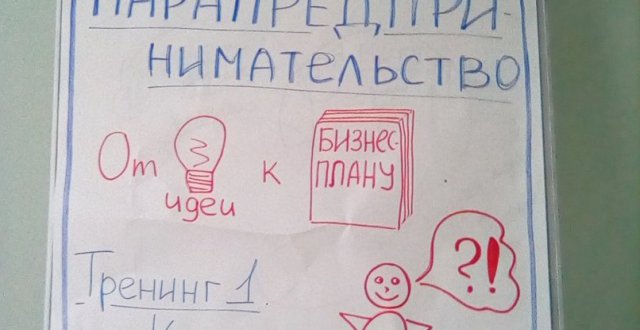 ПАРАПРЕДПРИ-
НИМАТЕЛЬСТВО
От идеи к БИЗНЕС-
ПЛАНУ
?!
Тренинг 1.